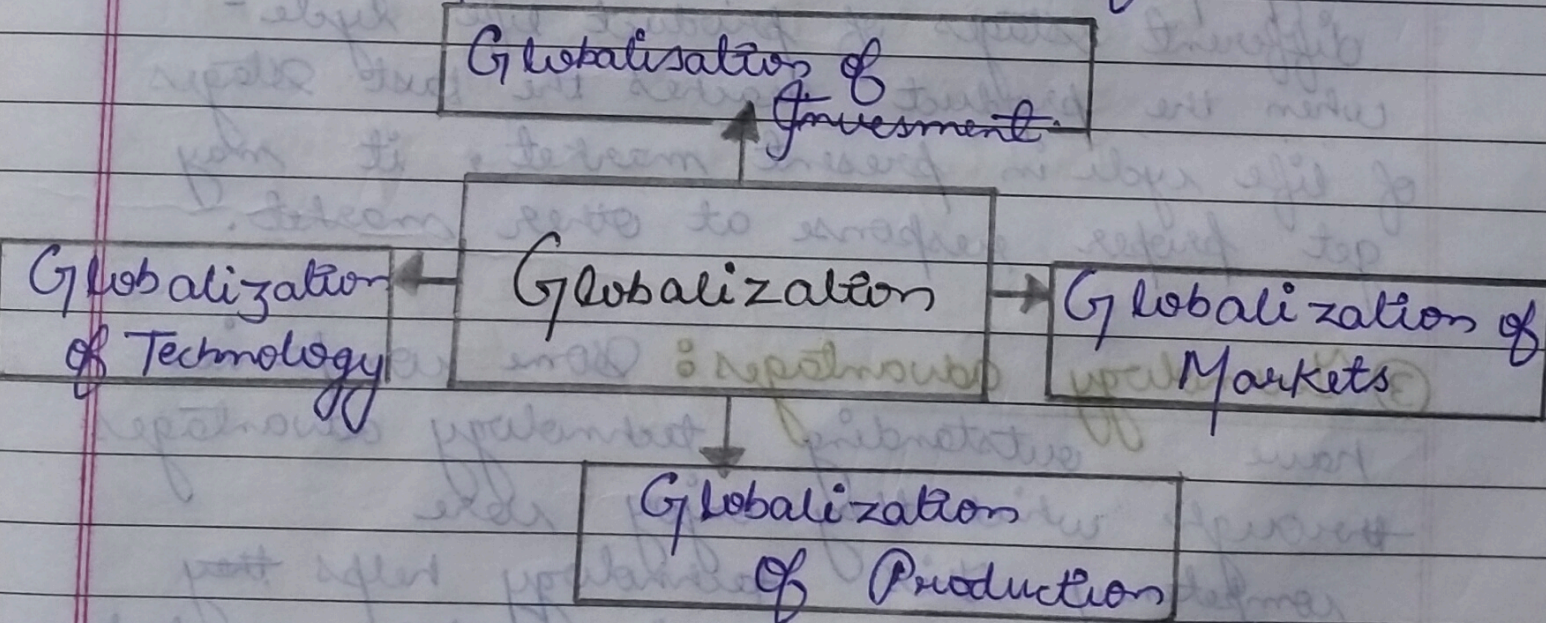 Globalisation of
Invesment.
Globalization
of Technology
Globalization
Globalization of
Markets
Globalization
of Production